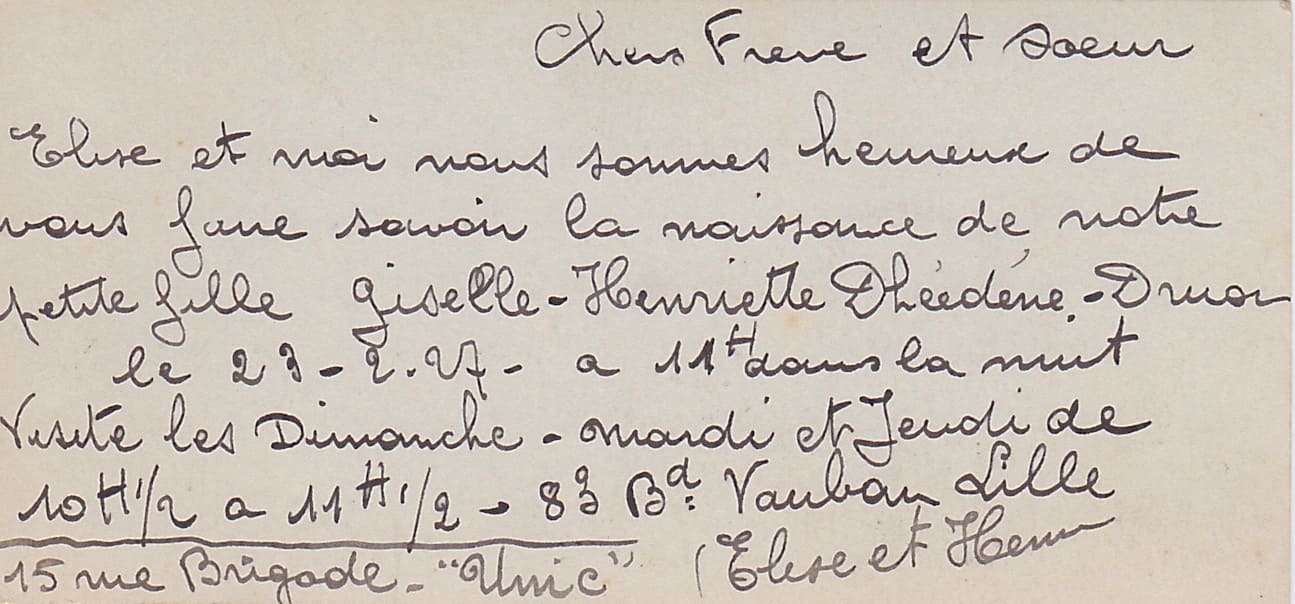 Chers Frere et soeur
Elise et moi nous sommes heureux de
vous faire savoir la naissance de notre
petite fille Giselle-Henriette Dhéedène-Druon
le 23-2.27- a 11H dans la nuit
Visite les Dimanche - mardi et Jeudi de
10H1/2 a 11H1/2 - 83 Bd: Vauban Lille
15 rue Brigode - "Unic" (Elise et Henri